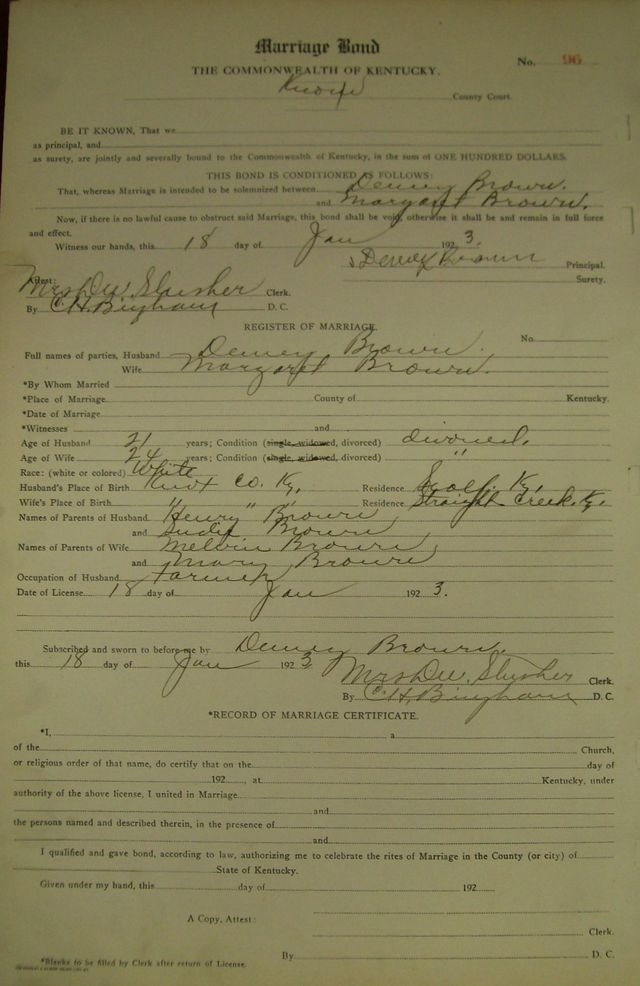 Marriage Bond
No. 96
THE COMMONWEALTH OF KENTUCKY.
Knox County Court.
BE IT KNOWN, That we
as principal, and
as surety, are jointly and severally bound to the Commonwealth of Kentucky, in the sum of ONE HUNDRED DOLLARS.
THIS BOND IS CONDITIONED AS FOLLOWS:
That, whereas Marriage is intended to be solemnized between Dewey Brown.
and Margaret Brown.
Now, if there is no lawful cause to obstruct said Marriage, this bond shall be void, otherwise it shall be and remain in full force
and effect.
Witness our hands, this 18 day of Jan 1923.
Dewey Brown Principal.
Attest: Surety.
Mrs D.W. Slusher Clerk.
By C.H. Bingham D. C.
REGISTER OF MARRIAGE.
No.
Full names of parties, Husband Dewey Brown.
Wife Margaret Brown.
*By Whom Married
*Place of Marriage County of Kentucky.
*Date of Marriage
*Witnesses and
Age of Husband 21 years; Condition (single, widowed, divorced) divorced.
Age of Wife 24 years; Condition (single, widowed, divorced) "
Race: (white or colored) White
Husband's Place of Birth Knox Co. Ky, Residence Ky,
Wife's Place of Birth " " " Residence Straight Creek, Ky,
Names of Parents of Husband Henry Brown
and Brown
Names of Parents of Wife Melvin Brown
and Mary Brown
Occupation of Husband Farmer
Date of License 18 day of Jan 1923.
Subscribed and sworn to before me by Dewey Brown.
this 18 day of Jan 1923
Mrs D.W. Slusher Clerk.
By C.H. Bingham D. C.
*RECORD OF MARRIAGE CERTIFICATE.
*I, a
of the Church,
or religious order of that name, do certify that on the day of
192 , at Kentucky, under
authority of the above license, I united in Marriage
and
the persons named and described therein, in the presence of
and
I qualified and gave bond, according to law, authorizing me to celebrate the rites of Marriage in the County (or city) of
State of Kentucky.
Given under my hand, this day of 192
A Copy, Attest:
Clerk.
By D. C.
*Blanks to be filled by Clerk after return of License.